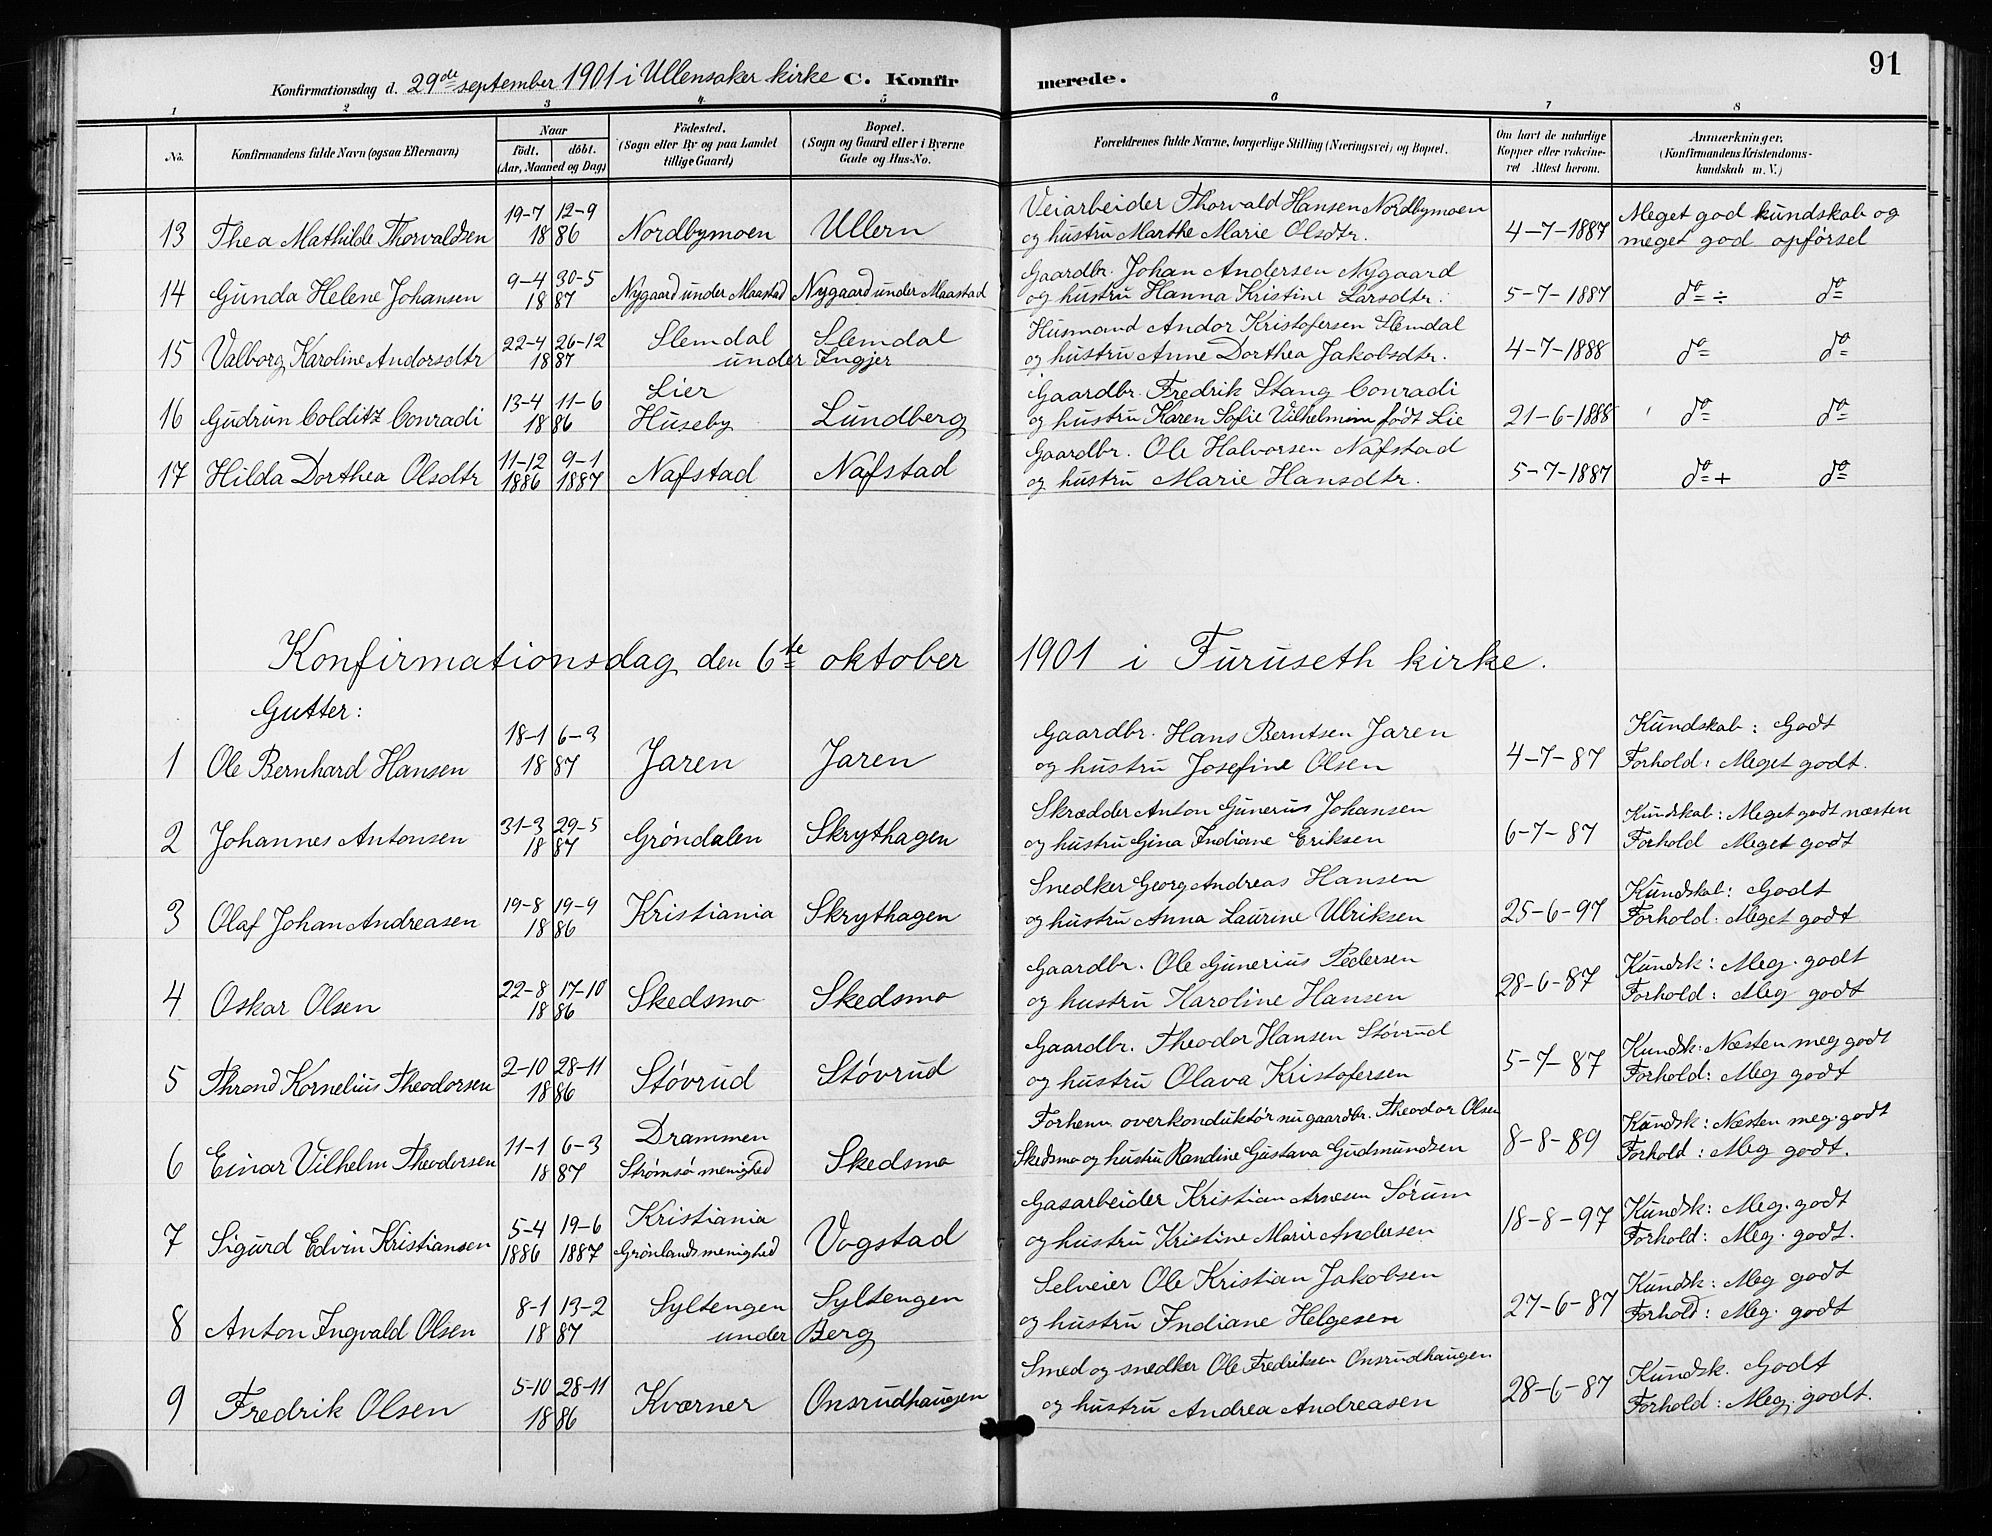 91
Konfirmationsdag d. 29de september 1901 i Ullensaker kirke C. Konfirmerede.
1 2 3 4 5 6 7 8
No. Konfirmandens fulde Navn (ogsaa Efternavn) Naar födt. döbt. (Aar, Maaned og Dag) Födested. (Sogn eller By og paa Landet tillige Gaard) Bopæl. (Sogn og Gaard eller i Byerne Gade og Hus-No. Forældrenes fulde Navne, borgerlige Stilling (Næringsvei) og Bopæl. Om havt de naturlige Kopper eller vakcineret Attest herom. Anmærkninger. (Konfirmandens Kristendomskundskab m. V.)
13 Thea Mathilde Thorvaldsen 19-7 12-9 1886 Nordbymoen Ullern Veiarbeider Thorvald Hansen Nordbymoen og hustru Marthe Marie Olsdtr. 4-7-1887 Meget god kundskab og meget god opførsel
14 Gunda Helene Johansen 9-4 30-5 1887 Nygaard under Maastad Nygaard under Maastad Gaardbr. Johan Andersen Nygaard og hustru Hanna Kristine Larsdtr. 5-7-1887 do ÷ do
15 Valborg Karoline Andorsdtr 22-4 26-12 1887 Slemdal Slemdal under Ingjer Husmand Andor Kristofersen Slemdal og hustru Anne Dorthea Jakobsdtr. 4-7-1888 do do
16 Gudrun Colditz Conradi 13-4 11-6 1886 Lier Huseby Lundberg Gaardbr. Fredrik Stang Conradi og hustru Karen Sofie Vilhelmine født Lie 21-6-1888 do do
17 Hilda Dorthea Olsdtr 11-12 1886 9-1 1887 Nafstad Nafstad Gaardbr. Ole Halvorsen Nafstad og hustru Marie Hansdtr. 5-7-1887 do + do
Konfirmationsdag den 6te oktober 1901 i Furuseth kirke.
Gutter:
1 Ole Bernhard Hansen 18-1 6-3 1887 Jaren Jaren Gaardbr. Hans Berntsen Jaren og hustru Josefine Olsen 4-7-87 Kundskab: Godt Forhold: Meget godt.
2 Johannes Antonsen 31-3 29-5 1887 Gröndalen Skrythagen Skrædder Anton Gunerius Johansen og hustru Gina Indiane Eriksen 6-7-87 Kundskab: Meget godt næsten Forhold Meget godt
3 Olaf Johan Andreasen 19-8 19-9 1886 Kristiania Skrythagen Snedker Georg Andreas Hansen og hustru Anna Laurine Ulriksen 25-6-97 Kundskab: Godt Forhold: Meget godt
4 Oskar Olsen 22-8 17-10 1886 Skedsmo Skedsmo Gaardbr. Ole Gunerius Pedersen og hustru Karoline Hansen 28-6-87 Kundsk: Meg. godt Forhold: Meg godt
5 Thrond Kornelius Theodorsen 2-10 28-11 1886 Stóvrud Stóvrud Gaardbr. Theodor Hansen Stóvrud og hustru Olava Kristofersen 5-7-87 Kundsk: Næsten meg godt Forhold: Meg godt
6 Einar Vilhelm Theodorsen 11-1 6-3 1887 Drammen Strømsø menighed Skedsmo Forhenv. overkonduktór nu gaardbr. Theodor Olsen Skedsmo og hustru Randine Gustava Gudmundsen 8-8-89 Kundsk: Næsten meg. godt Forhold: Meg godt.
7 Sigurd Edvin Kristiansen 5-4 1886 19-6 1887 Kristiania Grönlands menighed Vogstad Gasarbeider Kristian Arnesen Sórum og hustru Kristine Marie Andersen 18-8-97 Kundsk: Meg. godt Forhold: Meg. godt.
8 Anton Ingvald Olsen 8-1 13-2 1887 Syltengen Syltengen under Berg Selveier Ole Kristian Jakobsen og hustru Indiane Helgesen 27-6-87 Kundsk: Meg godt Forhold: Meg. godt
9 Fredrik Olsen 5-10 28-11 1886 Kværner Onsrudhaugen Smed og snedker Ole Fredriksen Onsrudhaugen og hustru Andrea Andreasen 28-6-87 Kundsk. Godt Forhold: Meg. godt.